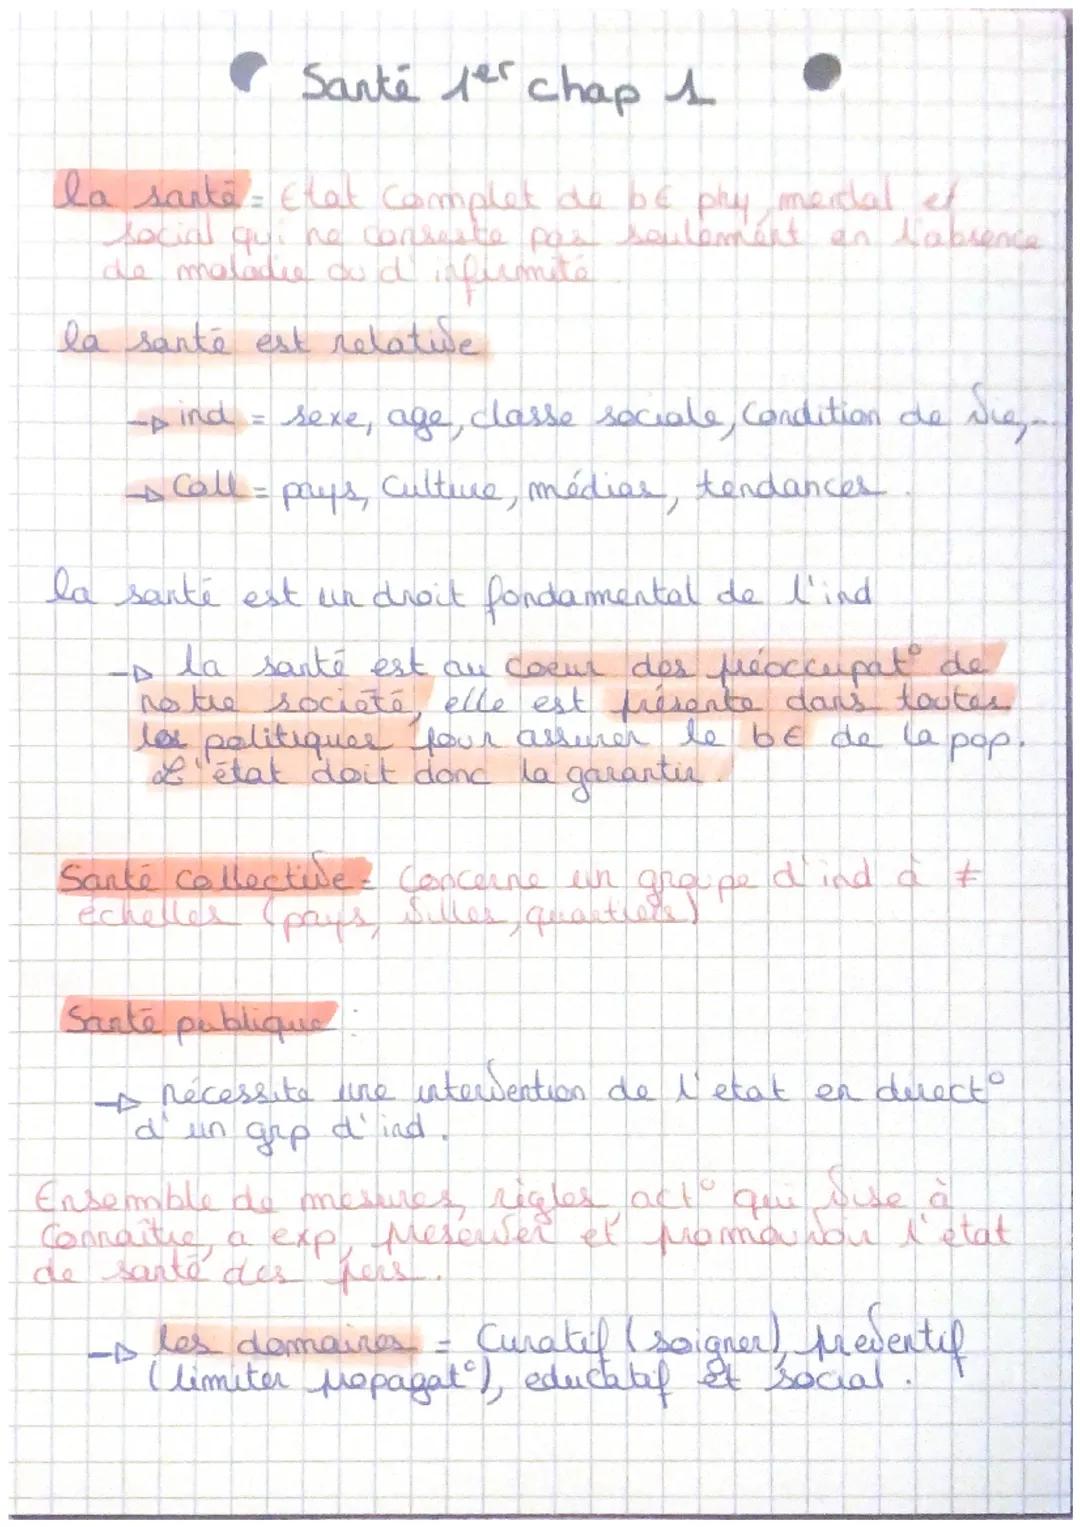 Santé 1er chap 1
la santé = Etat Complet de b€ phy, mental et
social qui ne consiste pas seulement en l'absence
de maladie ou d'infirmité
la santé est relative
→ ind = sexe, age, classe sociale, Condition de vie,...
→ Coll = pays, Culture, médias, tendances.
la santé est un droit fondamental de l'ind
→ la santé est au coeur des préoccupat° de
notre société, elle est présente dans toutes
les politiques pour assurer le b€ de la pop.
L'état doit donc la garantir.
Santé collective = Concerne un groupe d'ind à ≠
échelles (pays, villes, quartiers)
Santé publique :
→ nécessite une intervention de l'etat en direct°
d'un grp d'ind.
Ensemble de mesures, règles, act° qui vise à
Connaitre, a exp, préserver et promouvoir l'état
de santé des pers.
→ les domaines = Curatif (soigner), préventif
(limiter propagat°), educatif et social.